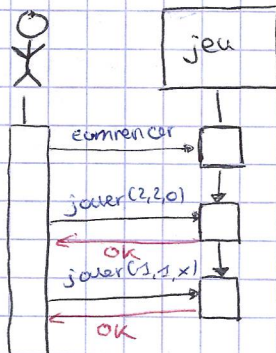 jeu
commencer
jouer(2,2,o)
OK
jouer(1,1,x)
OK